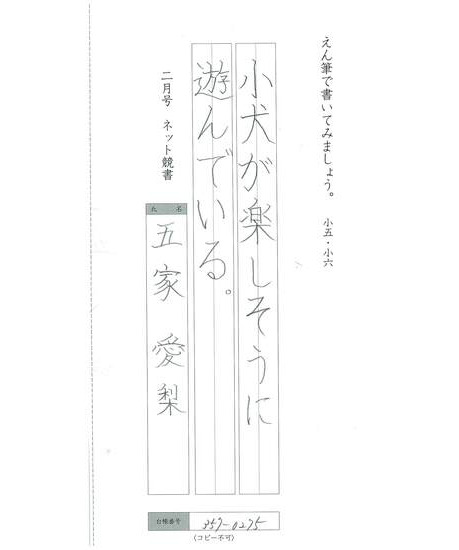 えん筆で書いてみましょう。　小五・小六
小犬が楽しそうに
遊んでいる。
二月号　ネット競書
氏名
五家　愛梨
台帳番号
957-0275
(コピー不可)